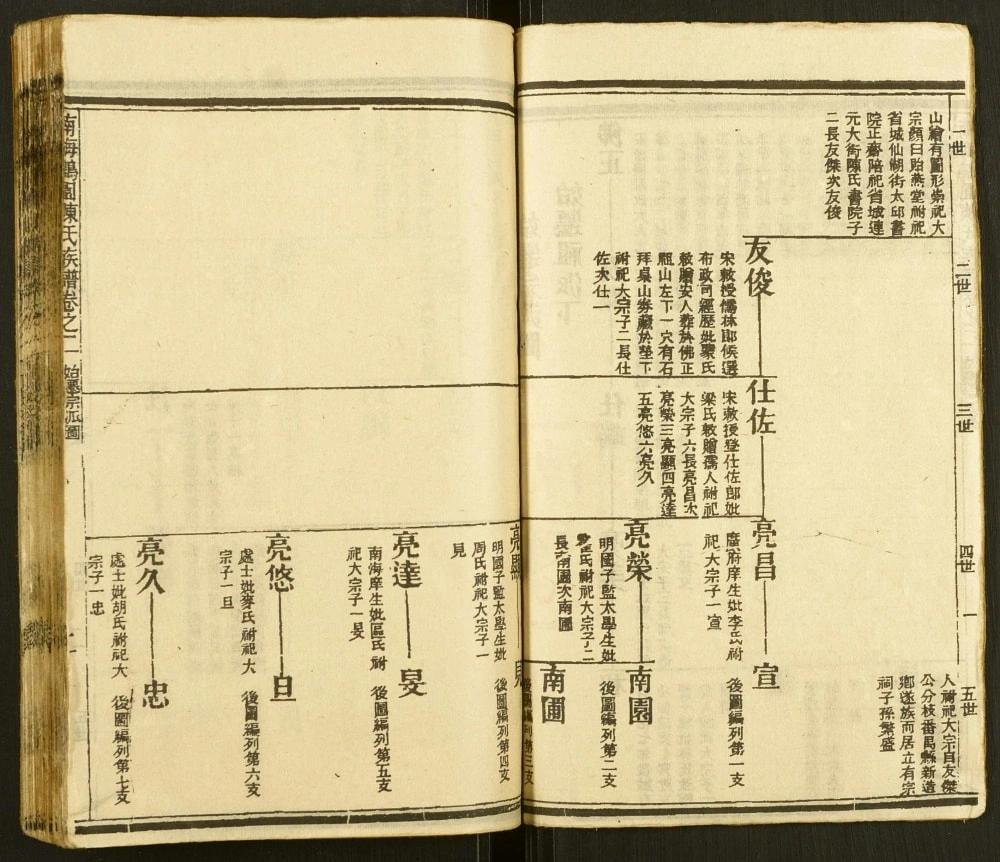 一世
山繪有圖形崇祀大
宗顏曰貽燕堂祔祀
省城仙湖街太邱書
院正齋陪祀省城連
元大街陳氏書院子
二長友傑次友俊
二世
友俊
宋敕授儒林郎候選
布政司經歷妣蒙氏
敕贈安人葬於佛正
瓶山左下一穴有石
拜桌山券藏於塋下
祔祀大宗子二長仕
佐次仕一
三世
仕佐
宋敕授登仕佐郎妣
梁氏敕贈孺人祔祀
大宗子六長亮昌次
亮榮三亮顯四亮達
五亮悠六亮久
四世
亮昌
庠生妣李氏祔
祀大宗子一宣
亮榮
明國子監太學生妣
氏祔祀大宗子二
長南園次南圃
五世
人祔祀大宗自友傑
公分枝番禺縣新造
鄉遂族而居立有宗
祠子孫繁盛
宣
後圖編列第一支
南園
後圖編列第二支
南圃
後圖編列第三支
亮顯
明國子監太學生妣
周氏祔祀大宗子一
見
見
後圖編列第四支
亮達
南海庠生妣區氏祔
祀大宗子一旻
旻
後圖編列第五支
亮悠
處士妣麥氏祔祀大
宗子一旦
旦
後圖編列第六支
亮久
處士妣胡氏祔祀大
宗子一忠
忠
後圖編列第七支
南海鶴園陳氏族譜卷之二 始遷宗派圖